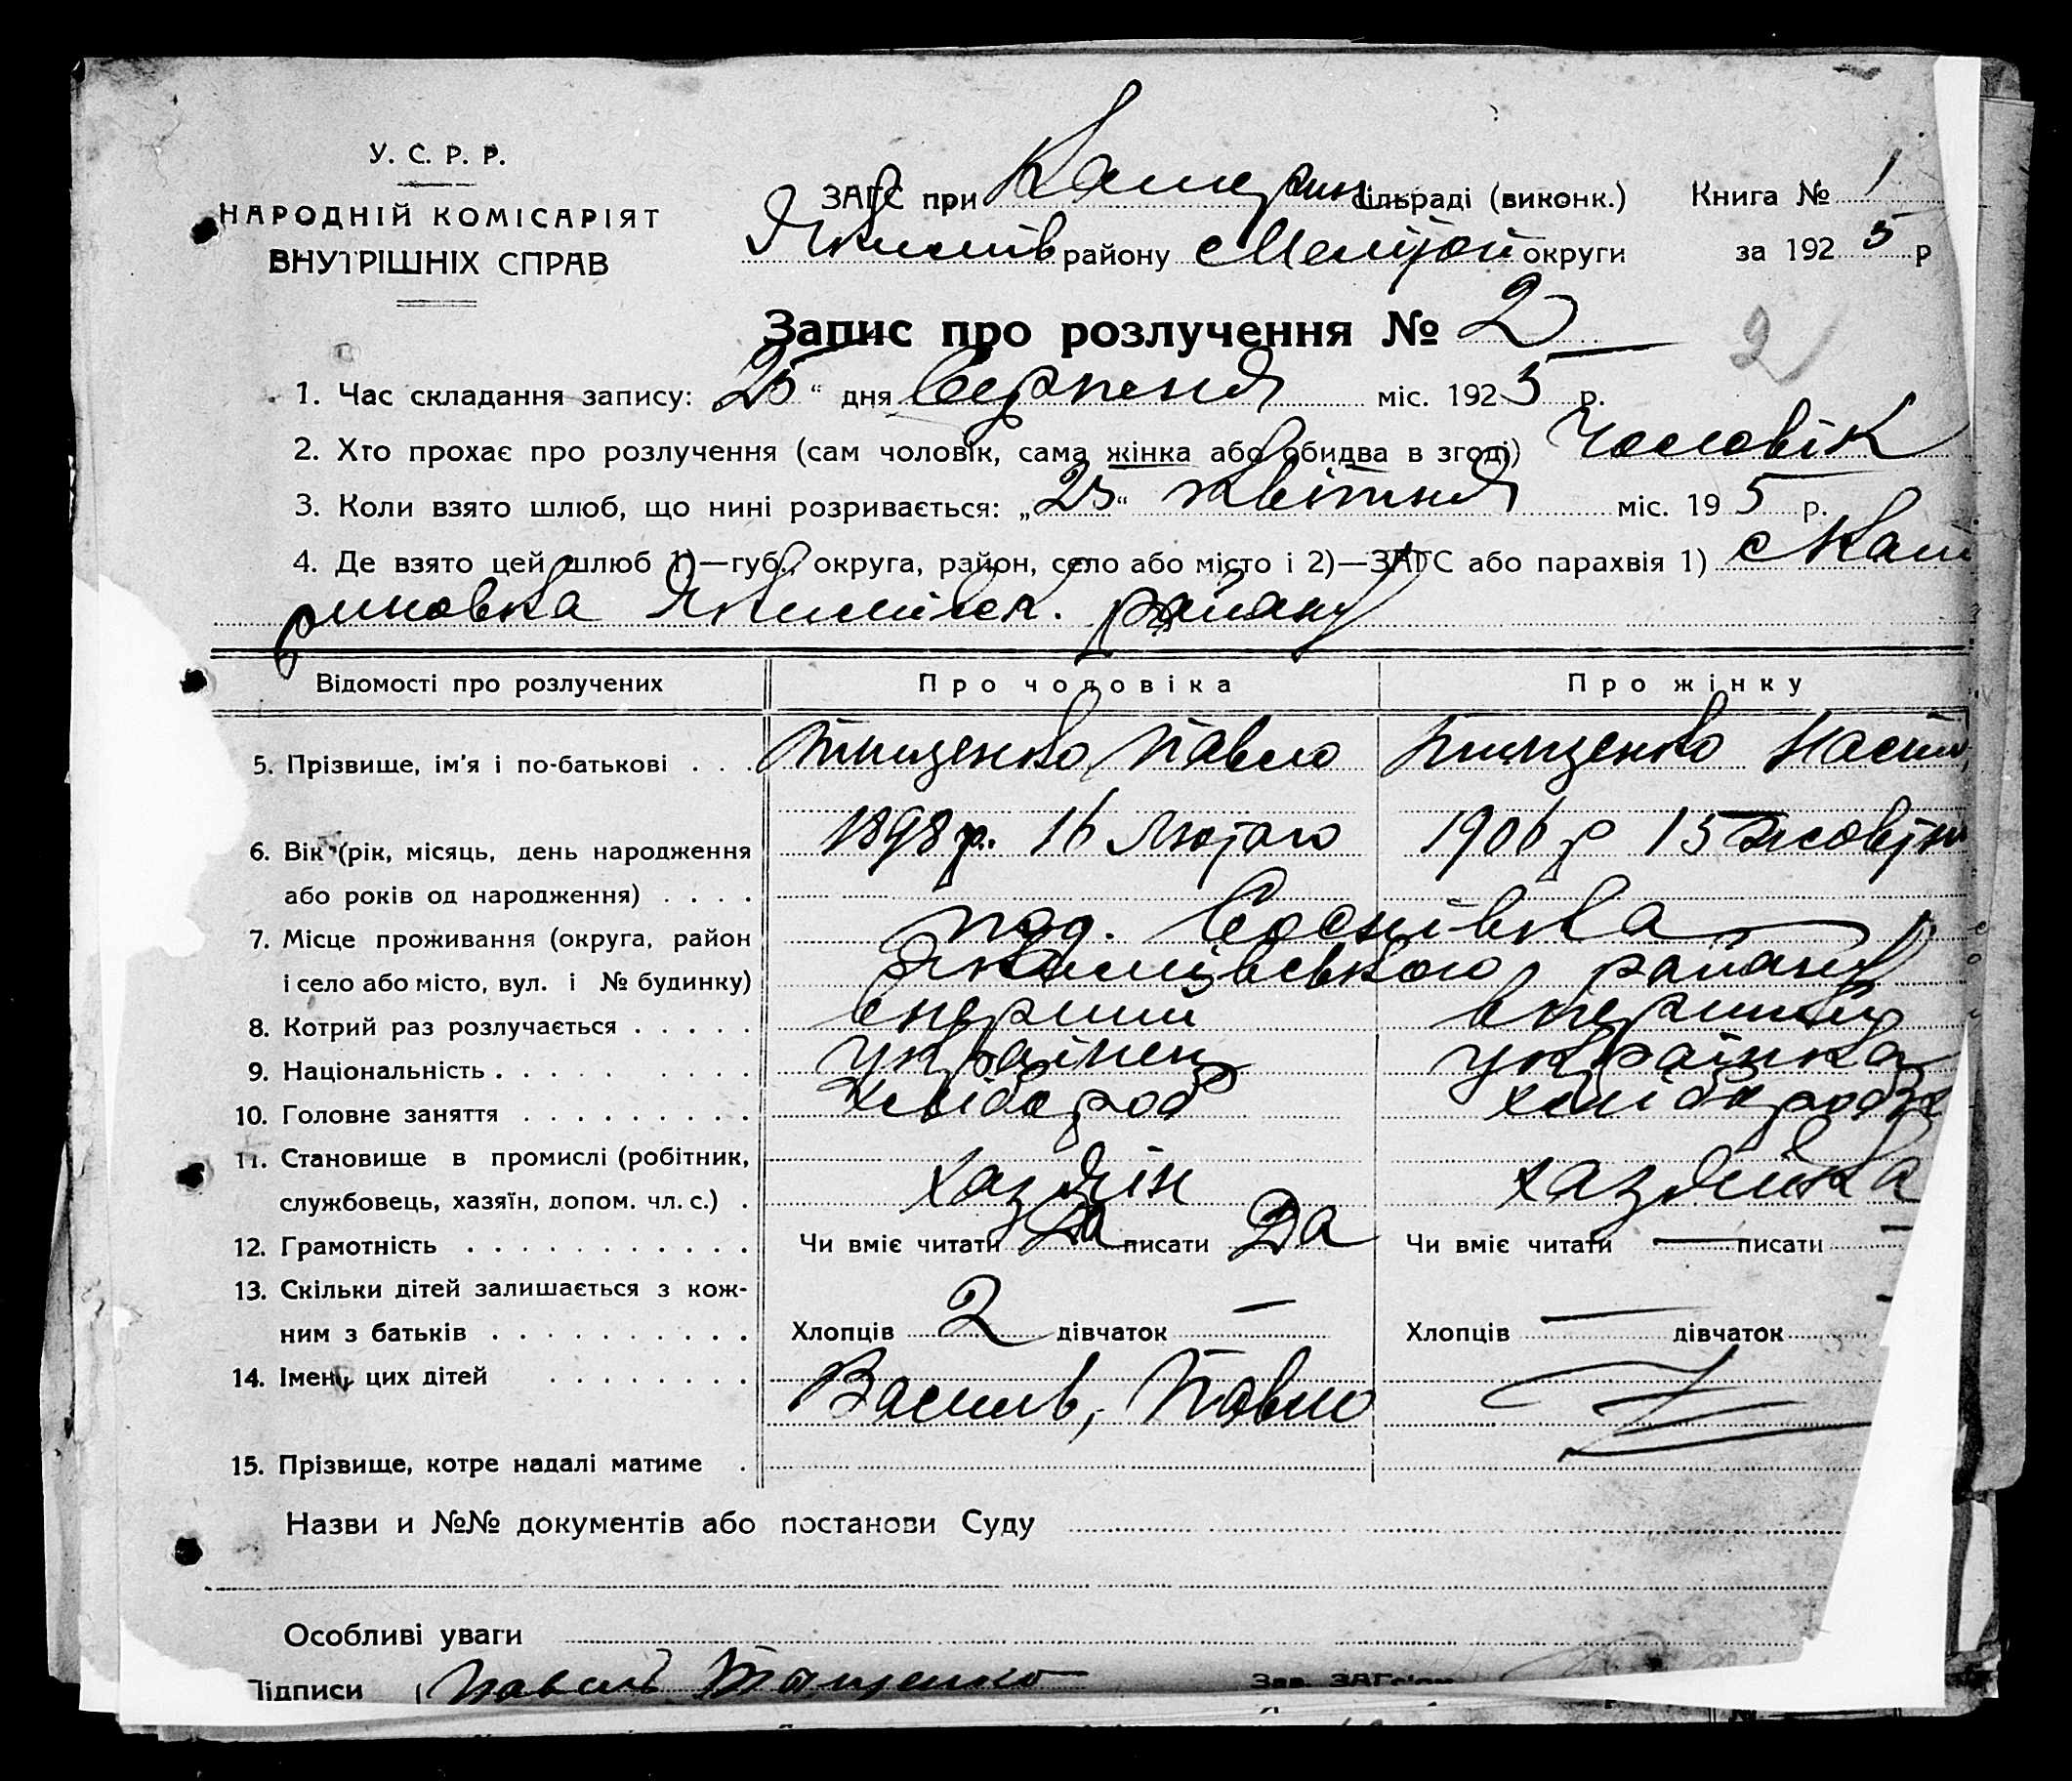 У. С. Р. Р.
НАРОДНІЙ КОМІСАРІЯТ
ВНУТРІШНІХ СПРАВ
ЗАГС при сільраді (виконк.) Книга № 1
Якимів району Мелітоп округи за 1925 р
Запис про розлучення № 2
2
1. Час складання запису: 25 " дня Серпня міс. 1925 р.
2. Хто прохає про розлучення (сам чоловік, сама жінка або обидва в згоді) Чоловік
3. Коли взято шлюб, що нині розривається: „25" Квітня міс. 195 р.
4. Де взято цей шлюб 1)—губ., округа, район, село або місто і 2)—ЗАГС або парахвія 1) с Кат
риновка Якимівск. району
Відомості про розлучених Про чоловіка Про жінку
5. Прізвище, ім'я і по-батькові . . . Тищенко Павло Тищенко Насти
6. Вік (рік, місяць, день народження 1898 р. 16 Лютого 1906 р 15 жовтн
або років од народження) . . . .
7. Місце проживання (округа, район Соснівка
і село або місто, вул. і № будинку) Якимівського району
8. Котрий раз розлучається . . . . . вперший вперший
9. Національність . . . . . . . . українец українка
10. Головне заняття . . . . . . . . . хлібороб хліборобка
11. Становище в промислі (робітник,
службовець, хазяїн, допом. чл. с.) . хазяін хазяйка
12. Грамотність . . . . . . . . . . . Чи вміє читати Да писати Да Чи вміє читати — писати —
13. Скільки дітей залишається з кож-
ним з батьків . . . . . . . . . . Хлопців 2 дівчаток — Хлопців — дівчаток
14. Імена цих дітей . . . . . . . .
Василь, Павло
15. Прізвище, котре надалі матиме .
Назви и №№ документів або постанови Суду
Особливі уваги
Підписи Павель Тищенко Зав. ЗАГс'ом